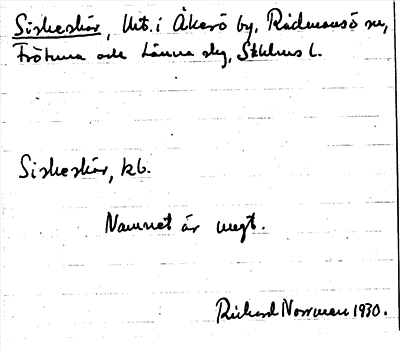 Siskeskär, Utt. i Åkerö by, Rådmansö sn,
Frötuna och Länna skg, Sthlms l.
Siskeskär, kb.
Namnet är uegt.
Richard Norrman 1930.